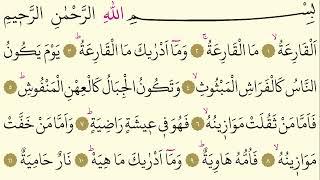 بِسْمِ اللّٰهِ الرَّحْمٰنِ الرَّحِيمِ
اَلْقَارِعَةُ ۙ ١ مَا الْقَارِعَةُ ۚ ٢ وَمَٓا اَدْرٰيكَ مَا الْقَارِعَةُ ۜ ٣ يَوْمَ يَكُونُ
النَّاسُ كَالْفَرَاشِ الْمَبْثُوثِ ۙ ٤ وَتَكُونُ الْجِبَالُ كَالْعِهْنِ الْمَنْفُوشِ ۜ ٥
فَاَمَّا مَنْ ثَقُلَتْ مَوَازٖينُهُ ۙ ٦ فَهُوَ فٖي عٖيشَةٍ رَاضِيَةٍ ۜ ٧ وَاَمَّا مَنْ خَفَّتْ
مَوَازٖينُهُ ۙ ٨ فَاُمُّهُ هَاوِيَةٌ ۜ ٩ وَمَٓا اَدْرٰيكَ مَا هِيَهْ ۜ ١٠ نَارٌ حَامِيَةٌ ١١